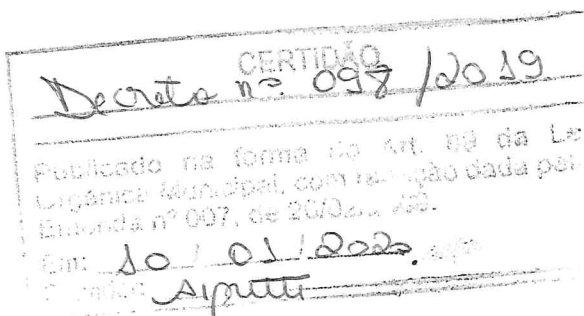 CERTIDÃO
Decreto nº 097/2019
Publicado na forma do Art. 89 da Le
Orgânica Municipal, com redação dada pel
Emenda nº 007, de
Em: 10 / 01 / 2020.